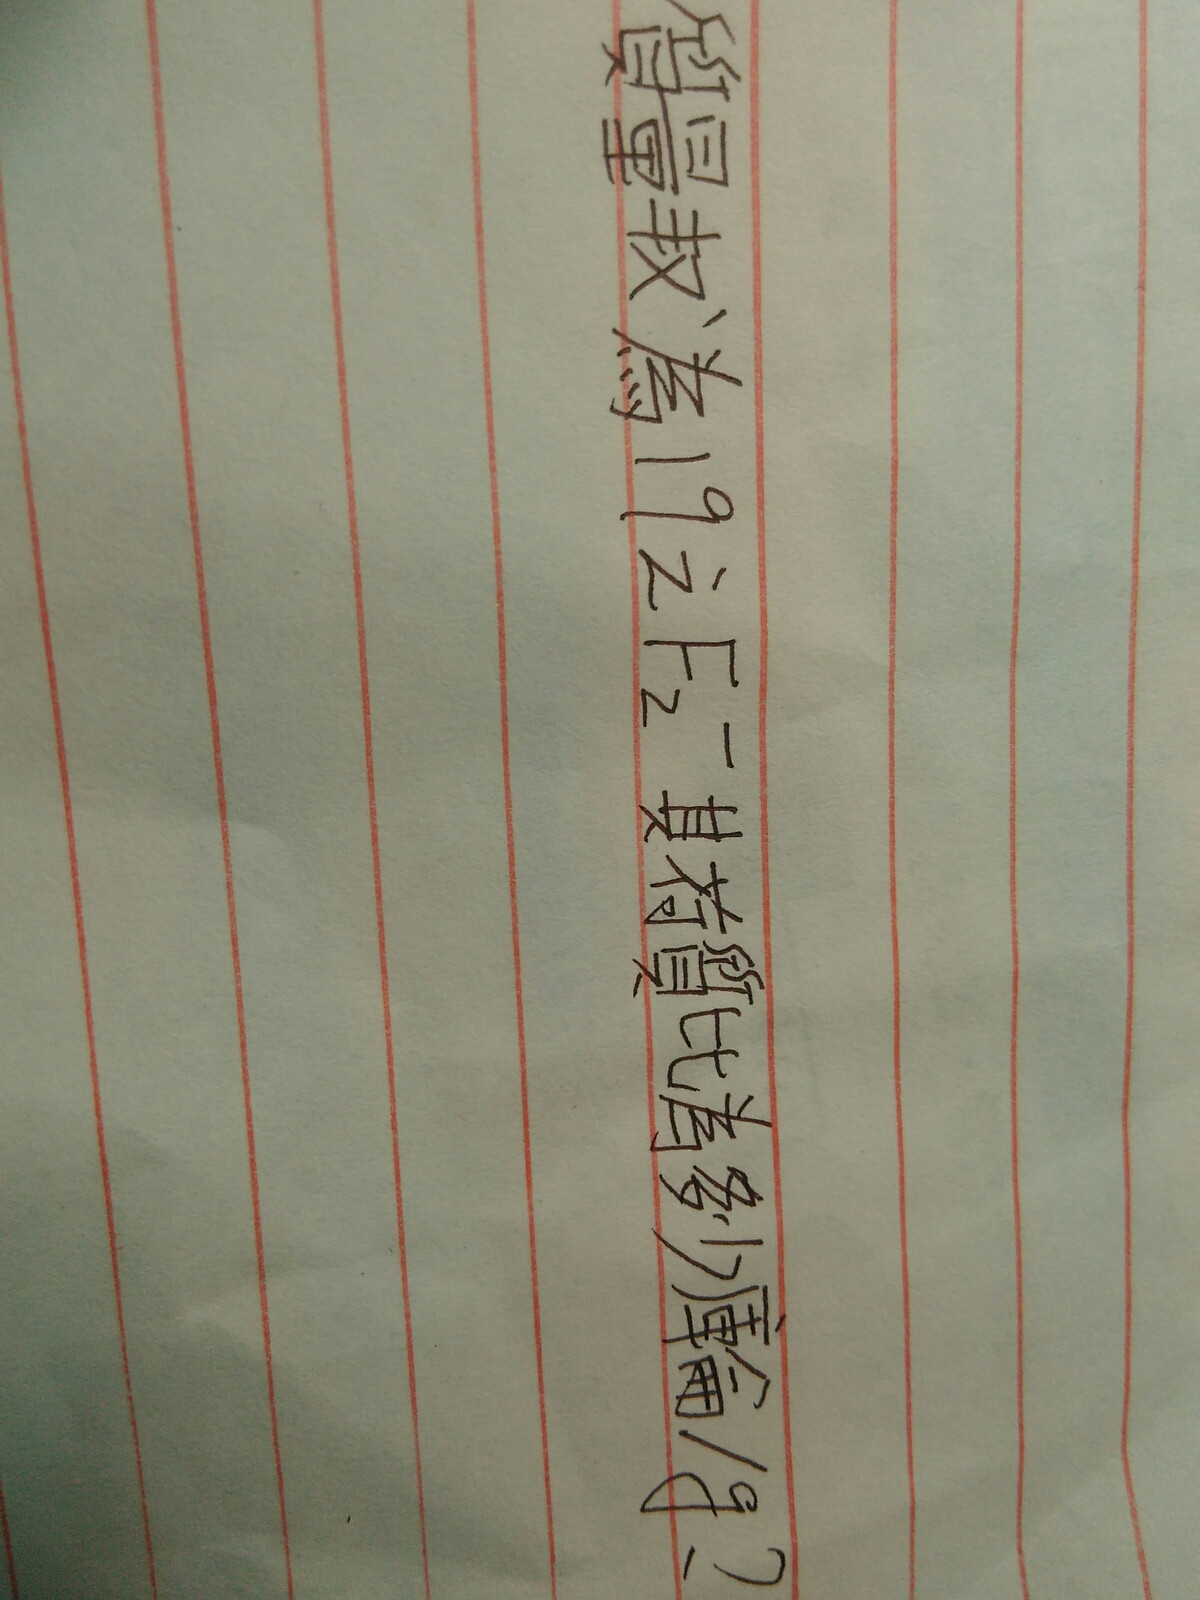 質量數為19之F₂⁻其荷質比為多少庫侖/g?